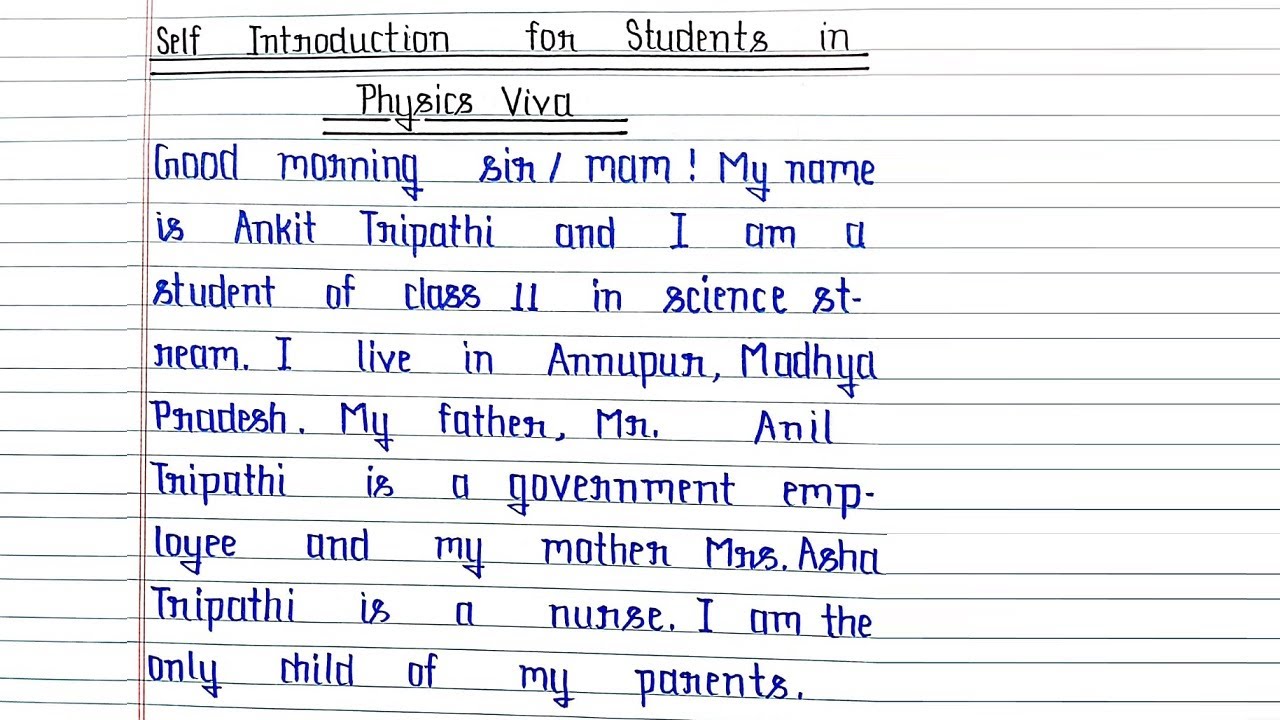 Self Introduction for Students in
Physics Viva
Good morning sir/ mam! My name
is Ankit Tripathi and I am a
student of class 11 in science st-
ream. I live in Annupur, Madhya
Pradesh. My father, Mr. Anil
Tripathi is a government emp-
loyee and my mother Mrs. Asha
Tripathi is a nurse. I am the
only child of my parents.